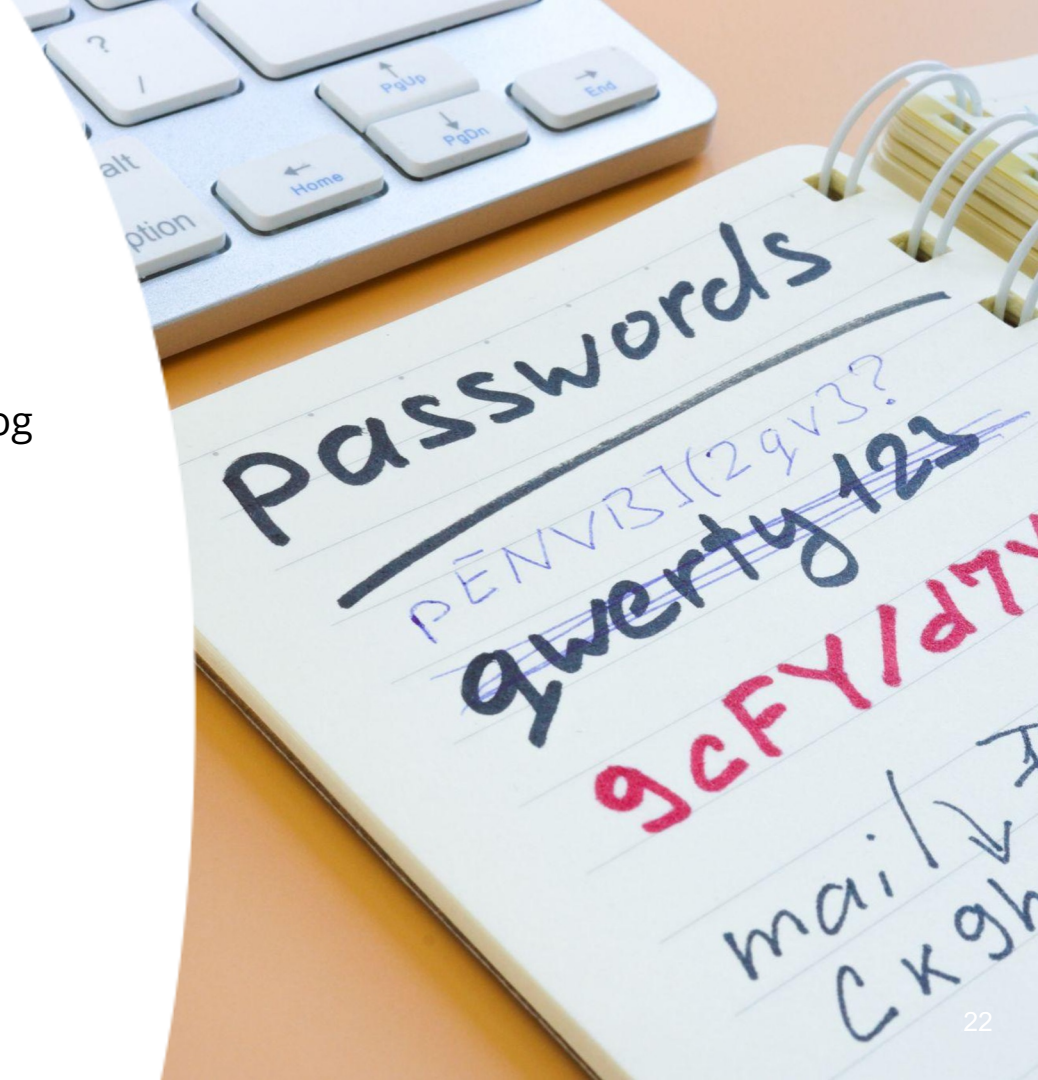 ?
/
PgUp
End
PgDn
alt
Home
ption
og
Passwords
pENVBI(2qv3?
qwerty 123
gcFY/d7
mail
Ckgh
22